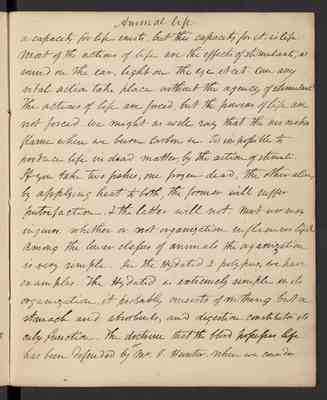 Animal life
a capacity for life exists, but this capacity for it is life
Most of the actions of life are the effects of stimulants, as
sound on the ear, light on the eye etc etc. Can any
vital action take place without the agency of stimulants
The actions of life are forced but the powers of life are
not forced we might as well say that there is no
flame when we burn carbon &c. Is impossible to
produce life in dead matter, by the action of stimuli.
If you take two fishes, one frozen dead, the other alive,
by applying heat to both, the former will suffer
putrefaction & the latter will not. Next we may
inquire whether or not organization influences life.
Among the lower classes of animals the organization
is very simple. In the Hydatid & polypus, we have
examples. The Hydatid is extremely simple in its
organization, it probably consists of nothing but a
stomach and absorbents, and digestion constitutes its
only function. The doctrine that the blood possesses life
has been defended by Mr. J. Hunter. When we consider